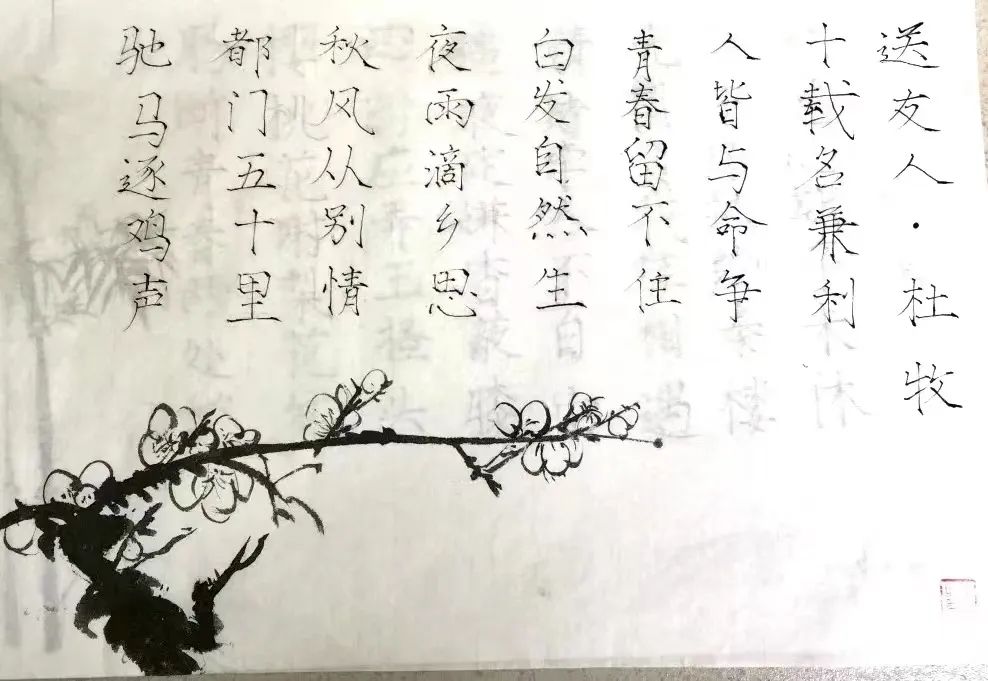 送友人·杜牧
十载名兼利
人皆与命争
青春留不住
白发自然生
夜雨滴乡思
秋风从别情
都门五十里
驰马逐鸡声